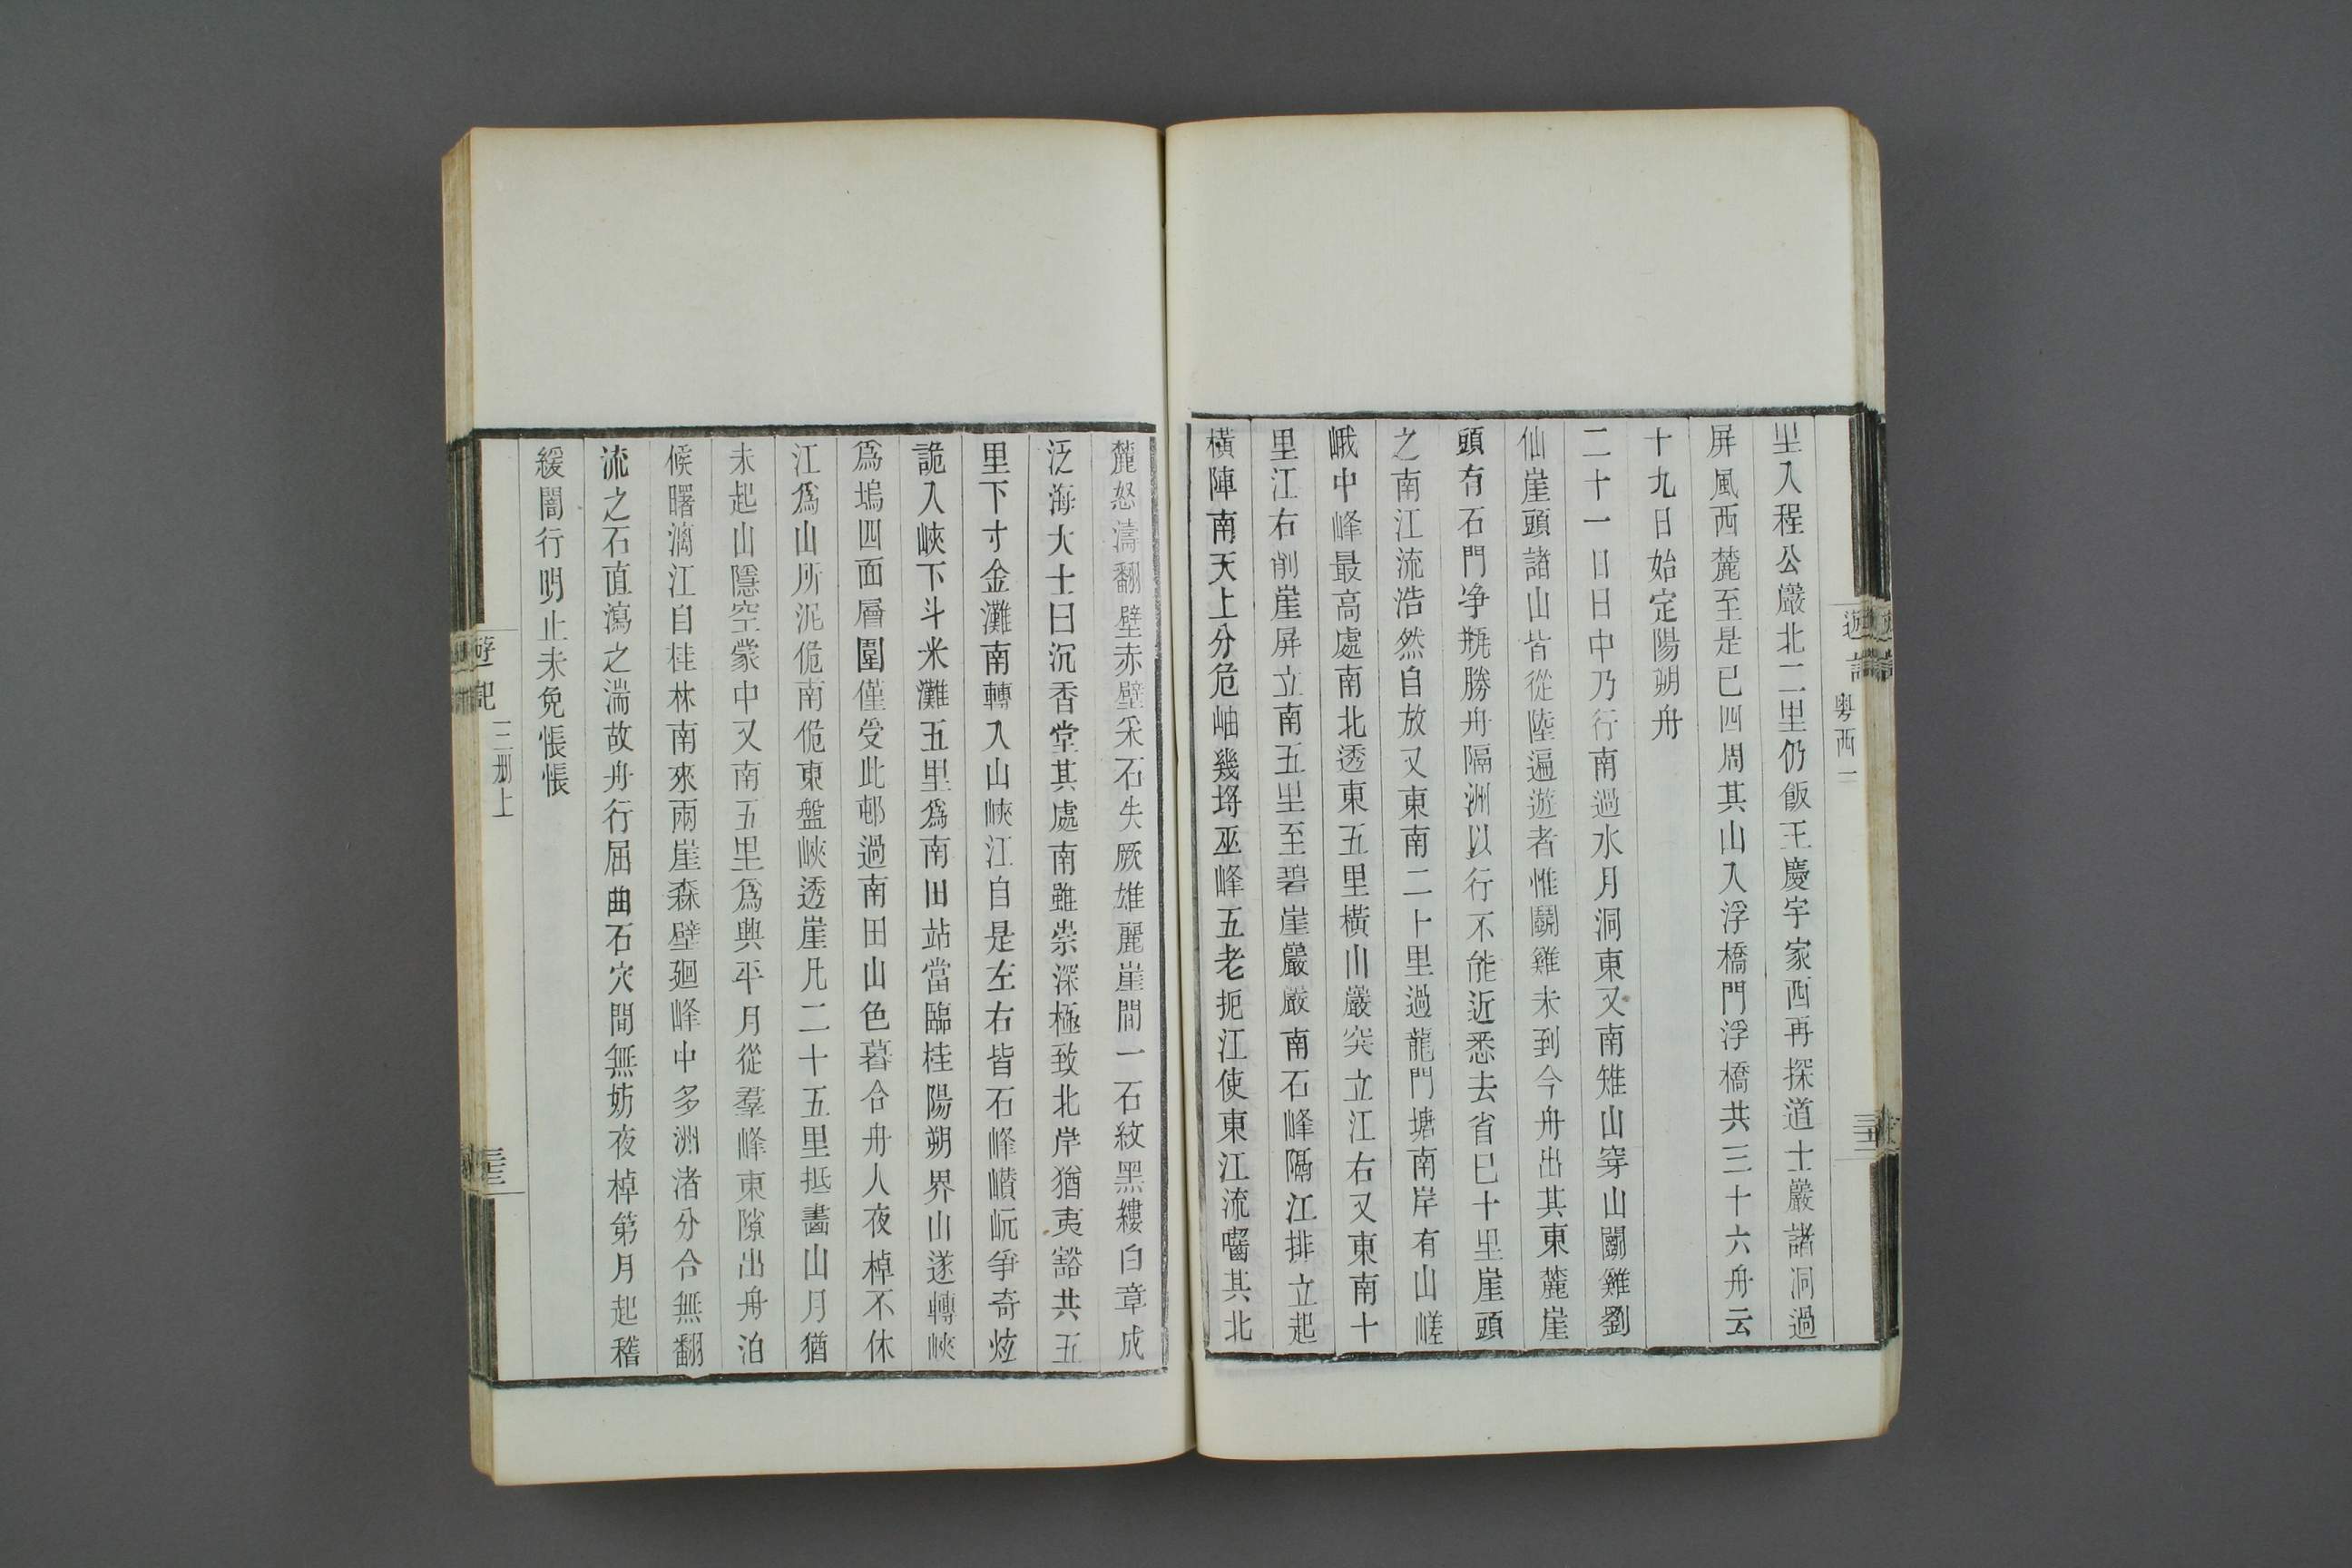 遊記 粵西一
里入程公巖北二里仍飯王慶宇家西再探道士巖諸洞過
屏風西麓至是已四周其山入浮橋門浮橋共三十六舟云
十九日始定陽朔舟
二十一日日中乃行南過水月洞東又南雉山穿山鬭雞劉
仙崖頭諸山皆從陸遍遊者惟鬭雞未到今舟出其東麓崖
頭有石門争瓶勝舟隔洲以行不能近悉去省已十里崖頭
之南江流浩然自放又東南二十里過龍門塘南岸有山嵯
峨中峰最高處南北透東五里橫山巖突立江右又東南十
里江右削崖屏立南五里至碧崖巖巖南石峰隔江排立起
橫陣南天上分危岫幾埓巫峰五老扼江使東江流嚙其北
麓怒濤翻壁赤壁采石失厥雄麗崖間一石紋黑縷白章成
泛海大士曰沉香堂其處南雖崇深極致北岸猶夷豁共五
里下寸金灘南轉入山峽江自是左右皆石峰巑岏爭奇炫
詭入峽下斗米灘五里爲南田站當臨桂陽朔界山遂轉峽
爲塢四面層圍僅受此邨過南田山色暮合舟人夜棹不休
江爲山所泥佹南佹東盤峽透崖凡二十五里抵畵山月猶
未起山隱空濛中又南五里爲興平月從羣峰東隙出舟泊
候曙漓江自桂林南來兩崖森壁廻峰中多洲渚分合無翻
流之石直瀉之湍故舟行屈曲石穴間無妨夜棹第月起稽
緩闇行明止未免悵悵
遊記 三册上